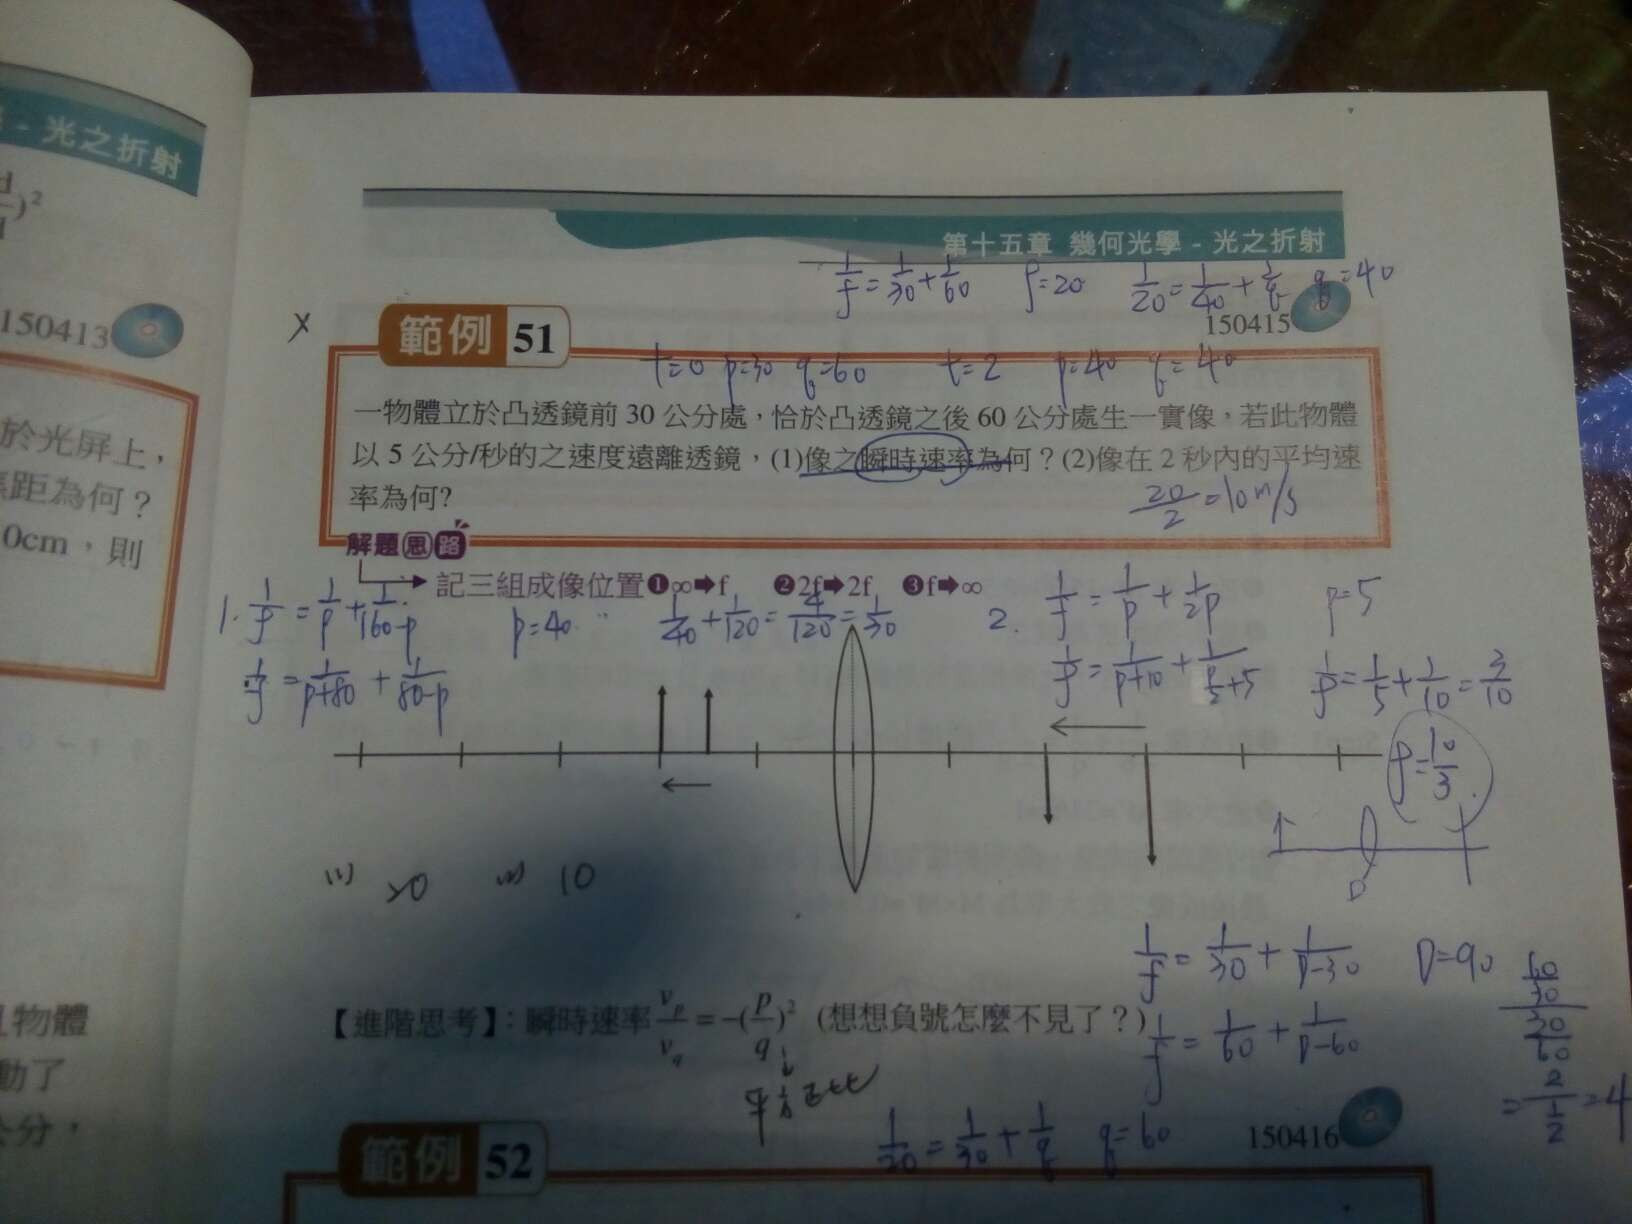 光之折射
)²
150413
於光屏上，
焦距為何？
0cm，則
物體
動了
公分，
第十五章 幾何光學 - 光之折射
1/f = 1/30 + 1/60 f=20 1/20 = 1/40 + 1/q q=40
150415
範例 51
t=0 p=30 q=60 t=2 p=40 q=40
一物體立於凸透鏡前 30 公分處，恰於凸透鏡之後 60 公分處生一實像，若此物體
以 5 公分/秒的之速度遠離透鏡，(1)像之瞬時速率為何？(2)像在 2 秒內的平均速
率為何?
20/2 = 10 m/s
解題思路
記三組成像位置❶∞➡f ❷2f➡2f ❸f➡∞
1. 1/f = 1/p + 1/160-p p=40 1/40 + 1/120 = 4/120 = 1/30
1/f = 1/p+80 + 1/80-p
2. 1/f = 1/p + 1/2p p=5
1/f = 1/p+10 + 1/p/5+5 1/f = 1/5 + 1/10 = 3/10
f = 10/3
D
(1) 20 (2) 10
1/f = 1/30 + 1/D-30 D=90
1/f = 1/60 + 1/D-60
60/30 / 30/60 = 2 / 1/2 = 4
【進階思考】：瞬時速率 vp/vq = -(p/q)² (想想負號怎麼不見了？)
平方正比
1/20 = 1/30 + 1/q q=60
150416
範例 52